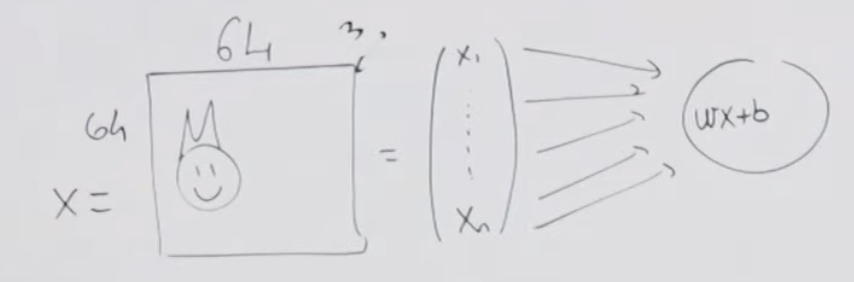 64 3
64
X =
=
x₁
xₙ
wx+b